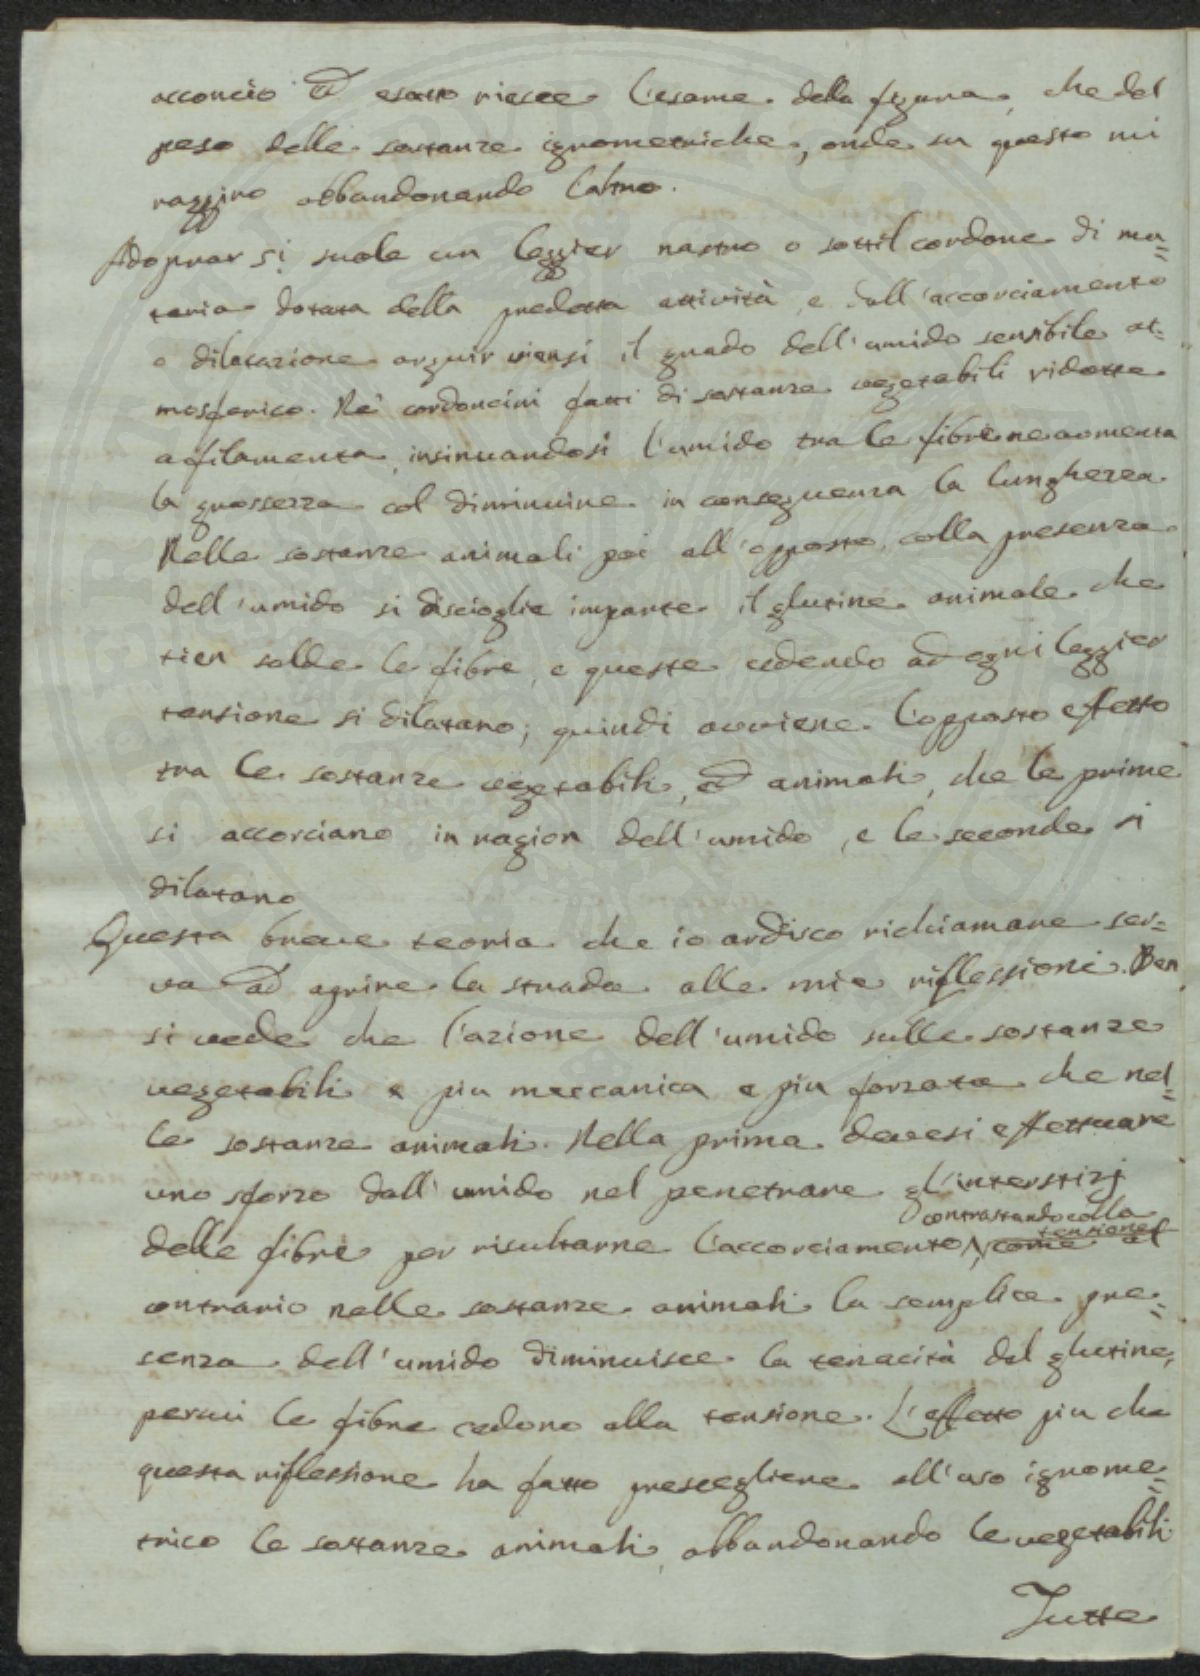 acconcio ed esatto riesce l'esame della figura, che del
peso delle sostanze igrometriche, onde su questo mi
raggiro abbandonando l'altro.
Adoprar si suole un leggier nastro o sottil cordone di ma=
teria dotata della predetta attività, e dall'accorciamento
o dilatazione arguir viensi il grado dell'umido sensibile at=
mosferico. Ne' cordoncini fatti di sostanze vegetabili ridotte
a filamenta, insinuandosi l'umido tra le fibre ne aomenta
la grossezza col diminuire in conseguenza la lunghezza.
Nelle sostanze animali poi all'opposto, colla presenza
dell'umido si discioglie imparte il glutine animale che
tien salde le fibre, e queste cedendo ad ogni leggier
tensione si dilatano; quindi avviene l'opposto effetto
tra le sostanze vegetabili, ed animali, che le prime
si accorciano in ragion dell'umido, e le seconde si
dilatano
Questa breve teoria che io ardisco richiamare ser=
va ad aprire la strada alle mie riflessioni. Ben
si vede che l'azione dell'umido sulle sostanze
vegetabili e piu meccanica e piu forzata che nel=
le sostanze animali. Nella prima devesi effettuare
uno sforzo dall'umido nel penetrare gl'interstizj
contrastando colla
tensione
delle fibre per risultarne l'accorciamento, come al
contrario nelle sostanze animali la semplice pre=
senza dell'umido diminuisce la tenacità del glutine,
percui le fibre cedono alla tensione. L'effetto piu che
questa riflessione ha fatto prescegliere all'uso igrome=
trico le sostanze animali, abbandonando le vegetabili
Tutte